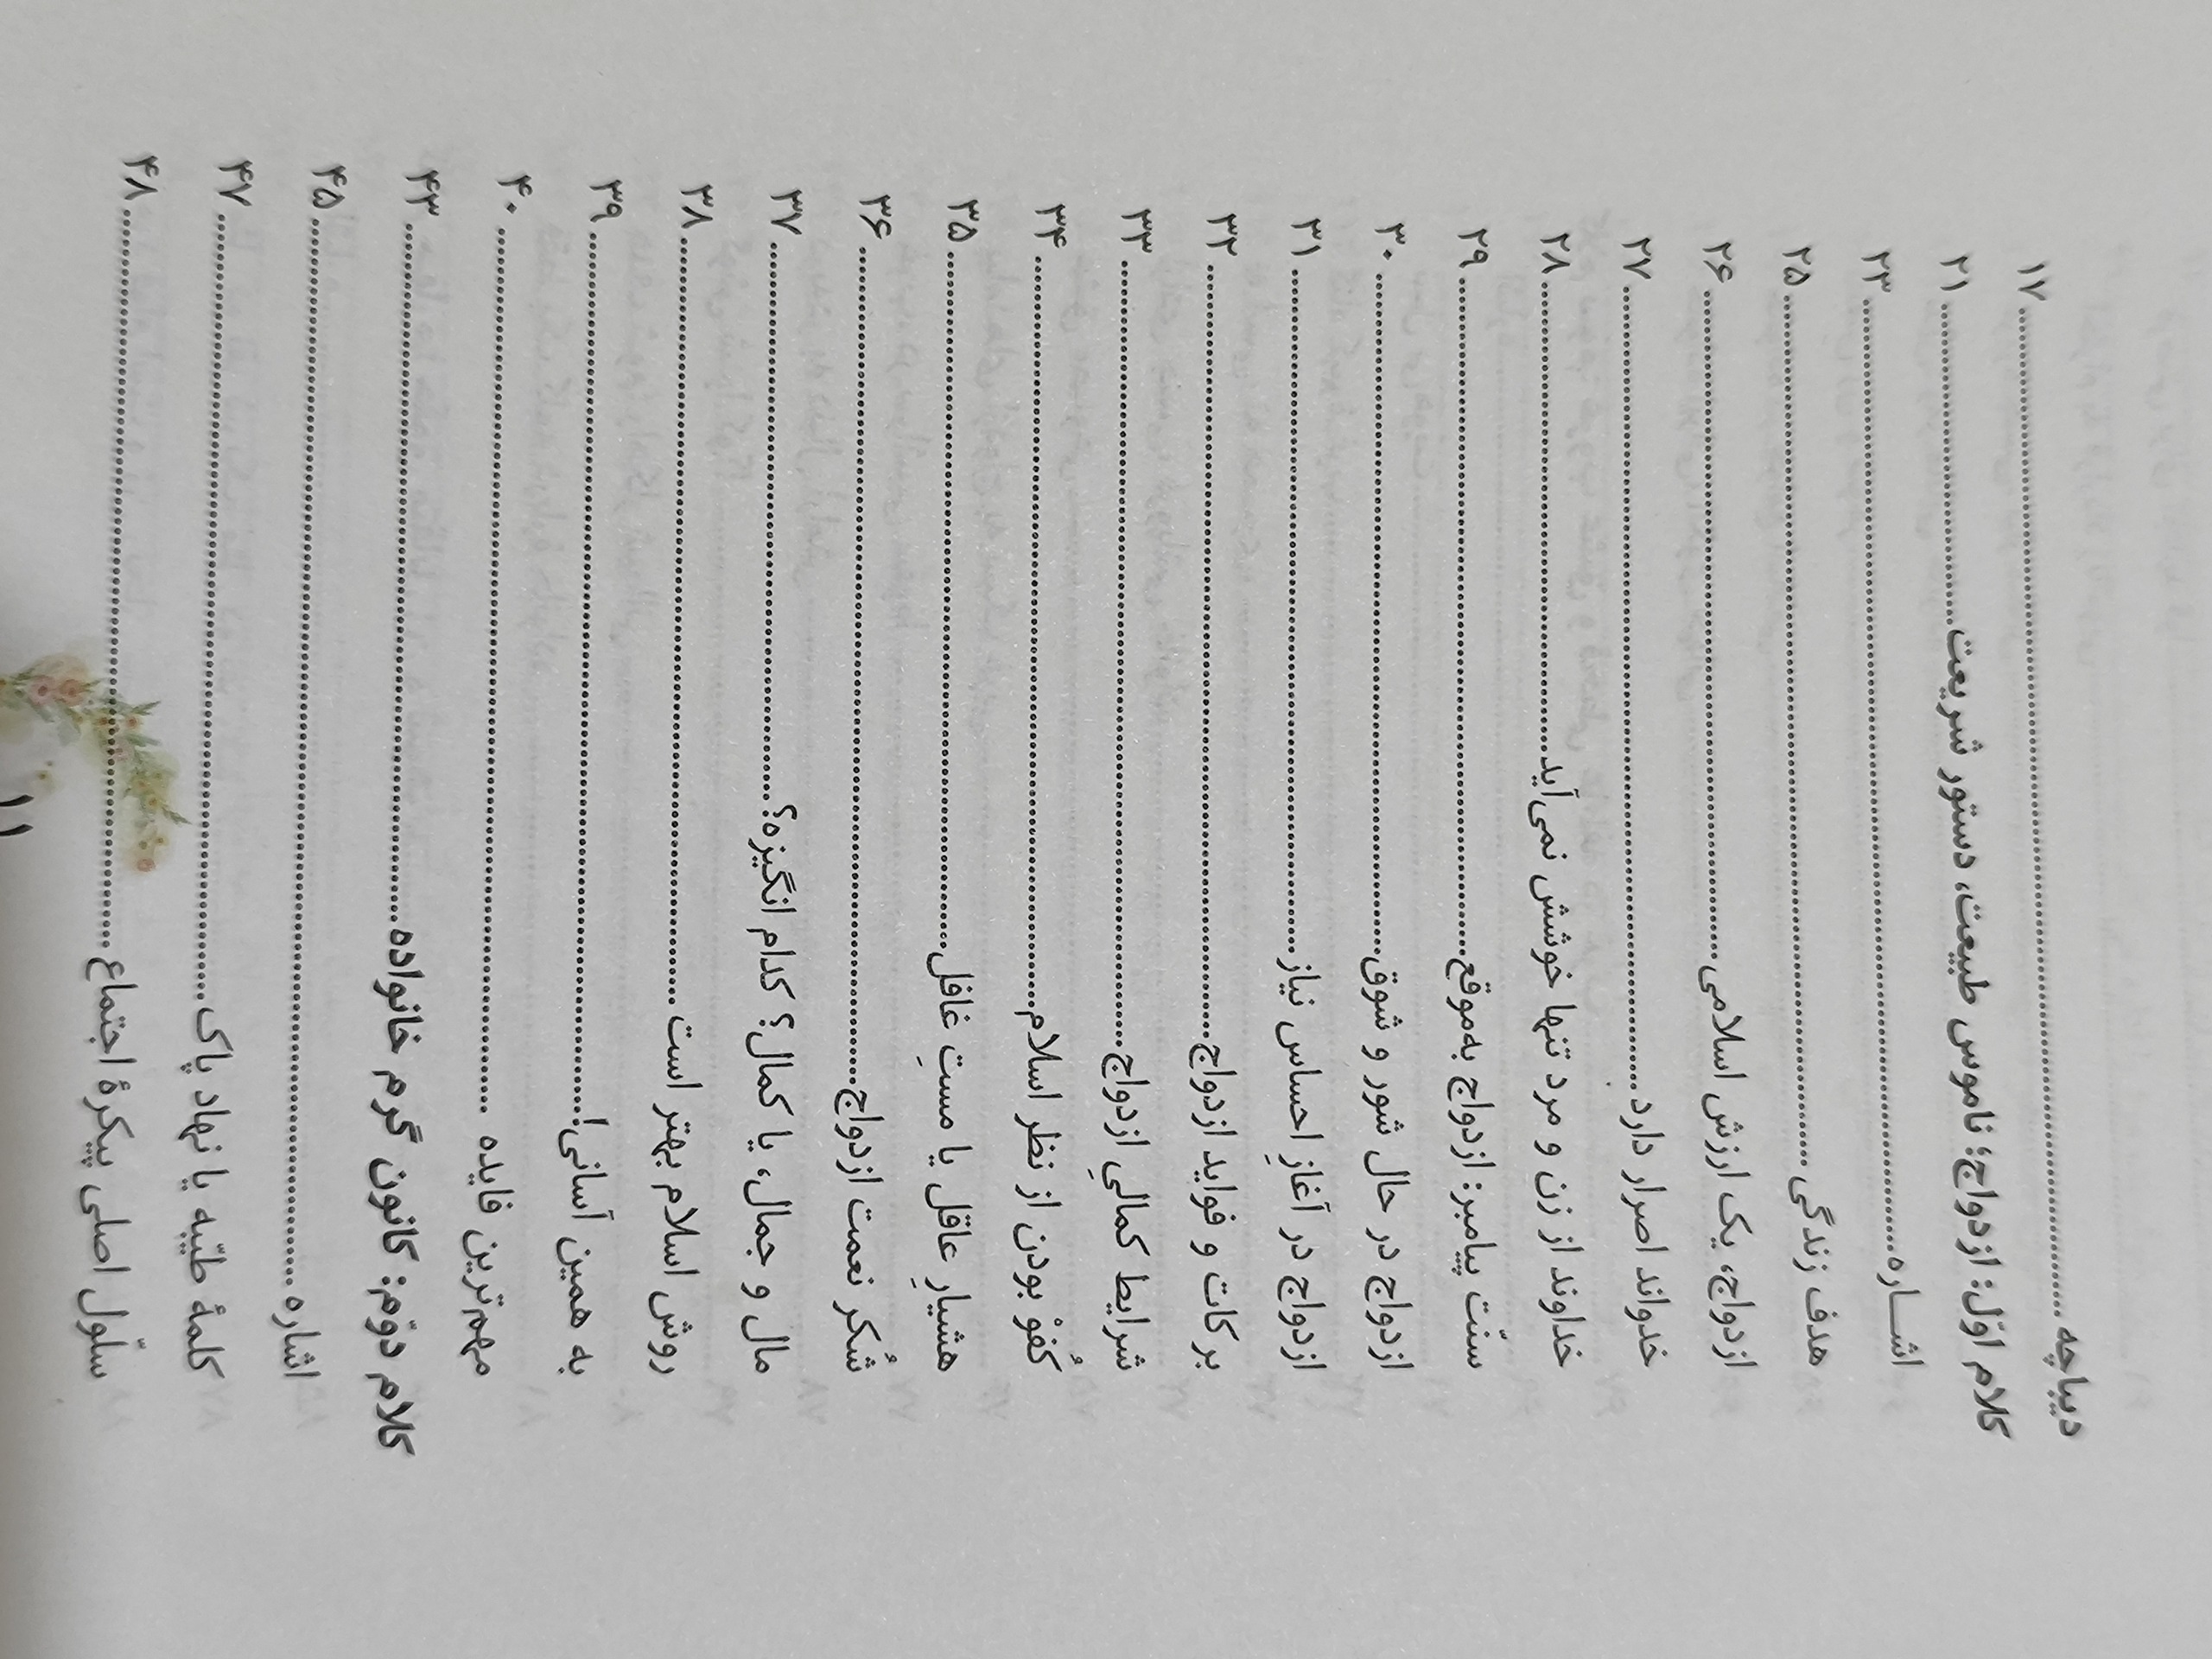 دیباچه ........ ۱۷
کلام اوّل: ازدواج؛ ناموس طبیعت، دستور شریعت ........ ۲۱
اشـــاره ........ ۲۳
هدف زندگی ........ ۲۵
ازدواج، یک ارزش اسلامی ........ ۲۶
خدواند اصرار دارد ........ ۲۷
خداوند از زن و مرد تنها خوشش نمی‌آید ........ ۲۸
سنّت پیامبر: ازدواج به‌موقع ........ ۲۹
ازدواج در حال شور و شوق ........ ۳۰
ازدواج در آغازِ احساس نیاز ........ ۳۱
برکات و فواید ازدواج ........ ۳۲
شرایط کمالیِ ازدواج ........ ۳۳
کُفوْ بودن از نظر اسلام ........ ۳۴
هشیارِ عاقل یا مستِ غافل ........ ۳۵
شُکر نعمت ازدواج ........ ۳۶
مال و جمال، یا کمال؟ کدام انگیزه؟ ........ ۳۷
روش اسلام بهتر است ........ ۳۸
به همین آسانی! ........ ۳۹
مهم‌ترین فایده ........ ۴۰
کلام دوّم: کانون گرم خانواده ........ ۴۳
اشاره ........ ۴۵
کلمهٔ طیّبه یا نهاد پاک ........ ۴۷
سلّول اصلی پیکرهٔ اجتماع ........ ۴۸
۱۱